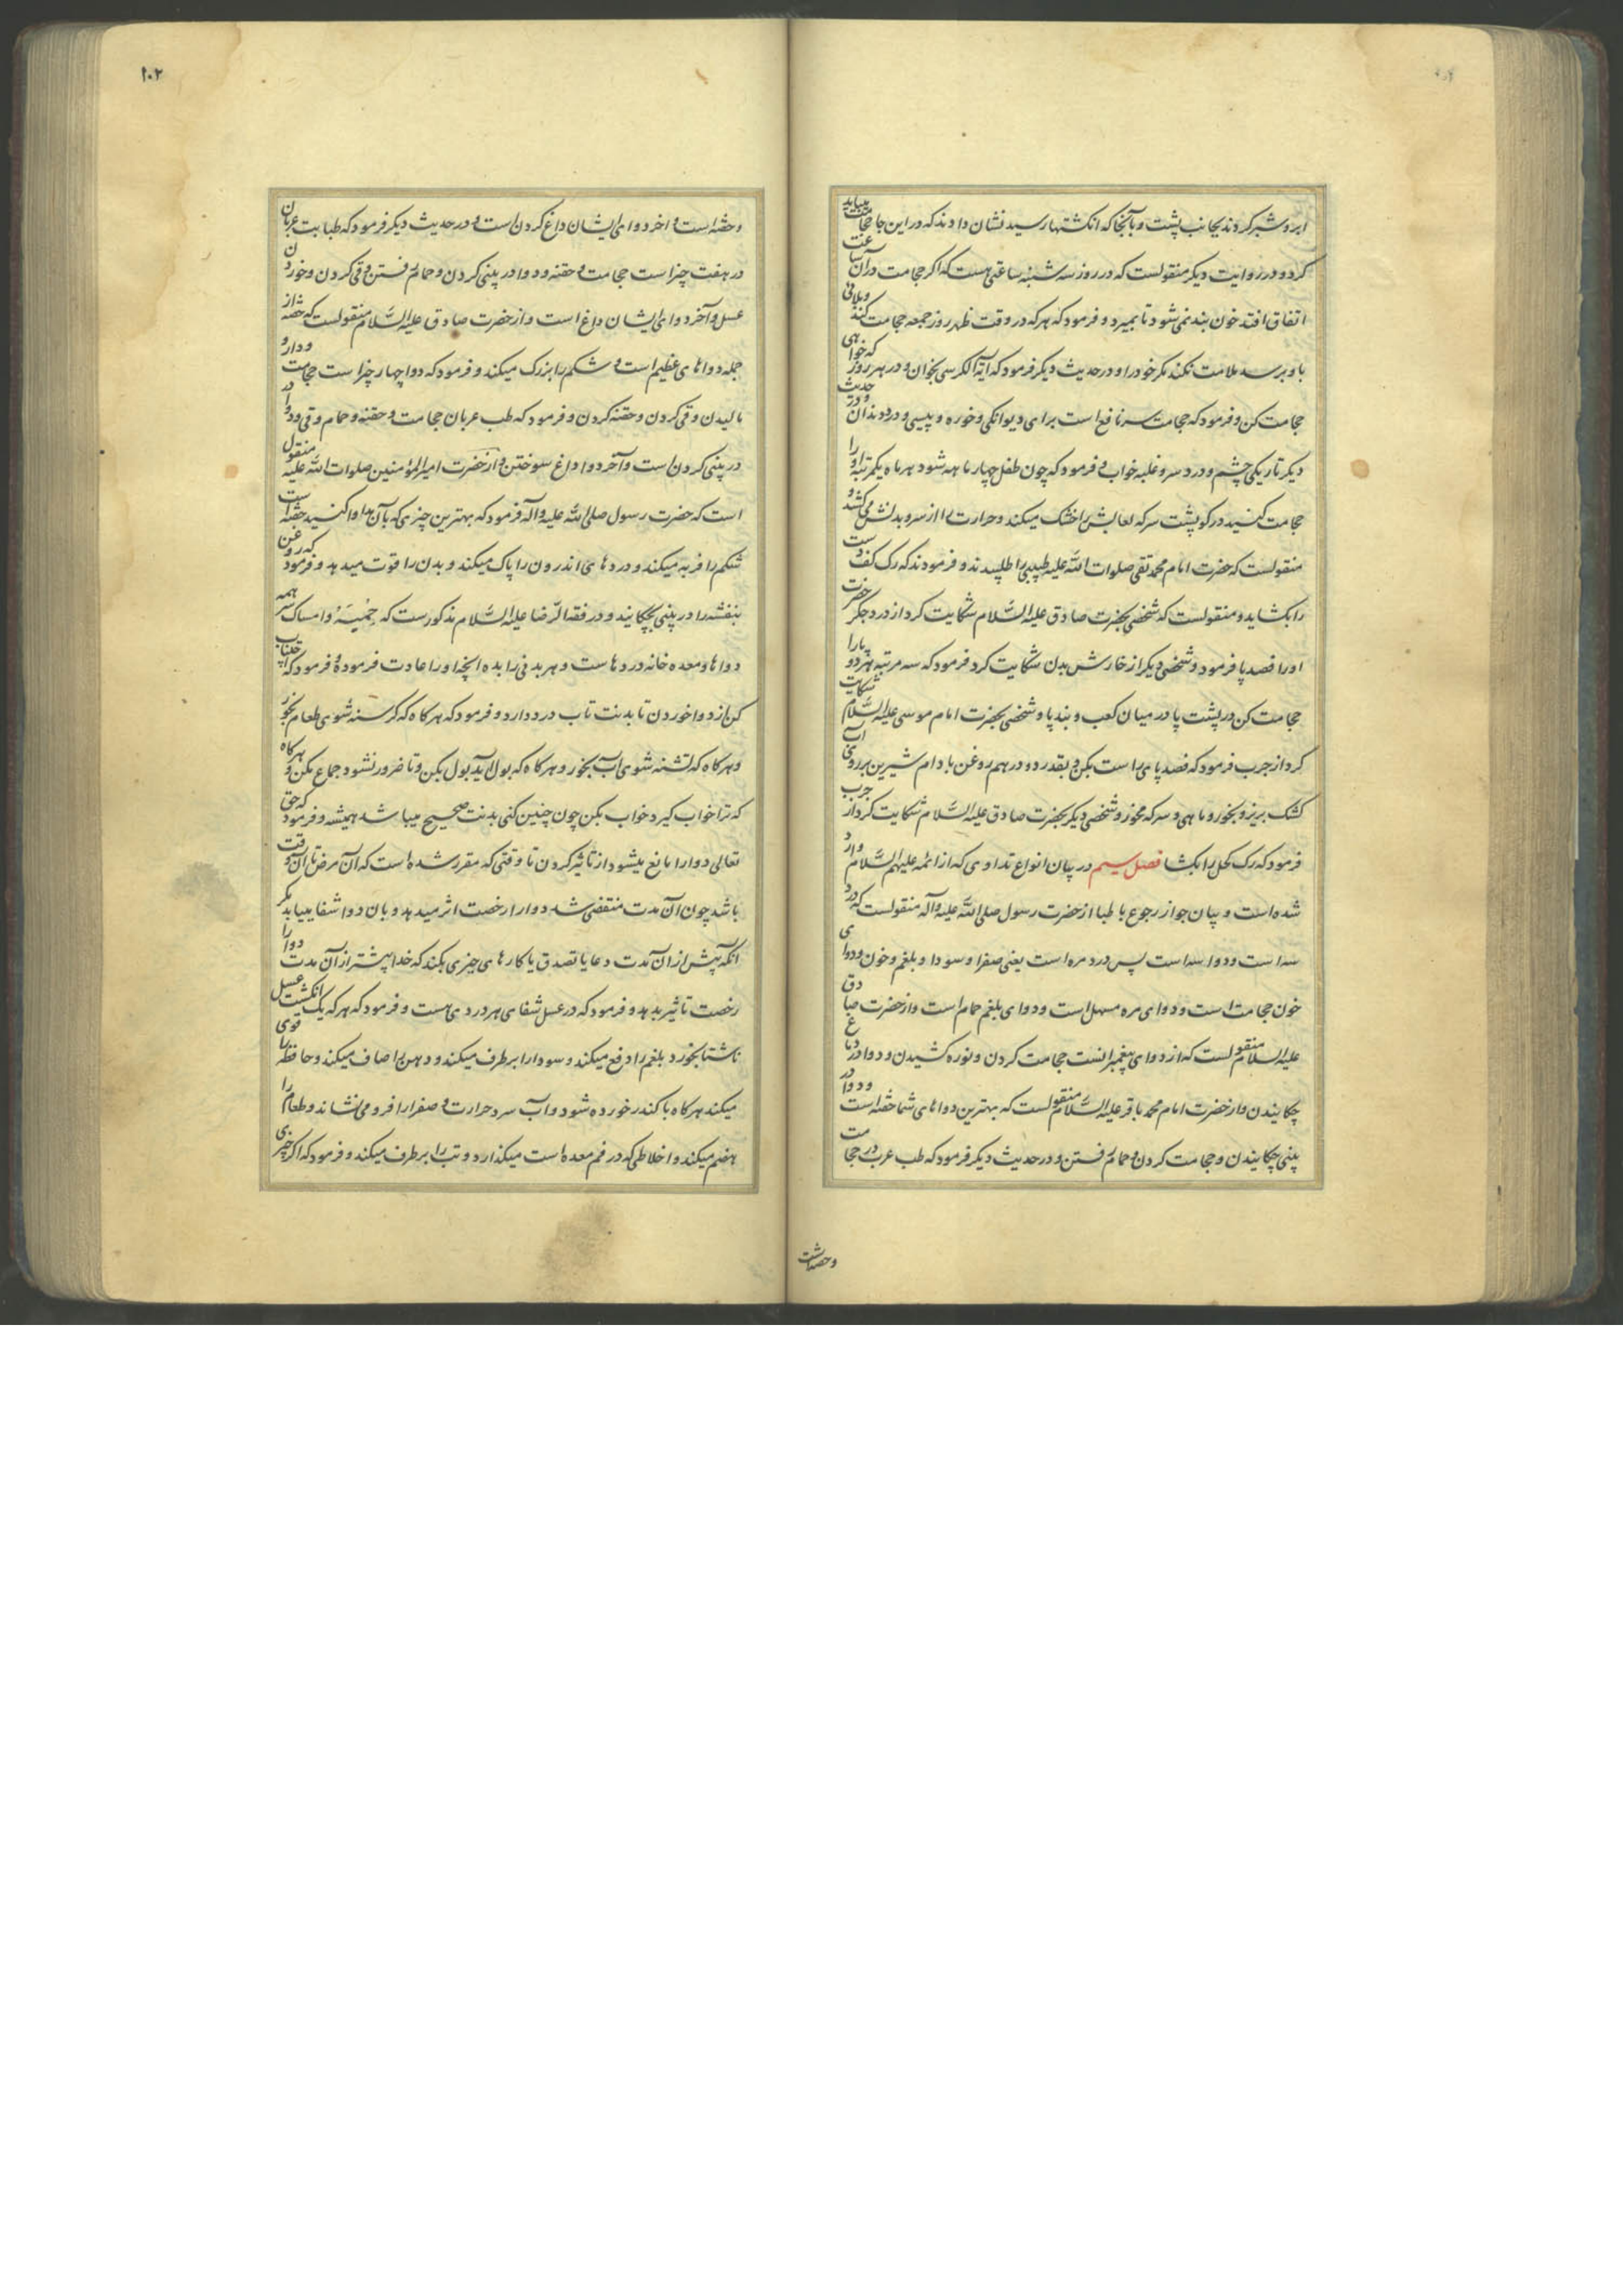 ابرو شبر کردند بجانب پشت و بآنجا که انکشتها رسید نشان دادند که در این جا حجامت میباید
کرد و در روایت دیکر منقولست که در روز سه شنبه ساعتی هست که اکر حجامت در آن ساعت
اتفاق افتد خون بند نمی شود تا بمیرد و فرمود که هر که در وقت ظهر روز جمعه حجامت کند و بلائی
باو برسد ملامت نکند مکر خود را و در حدیث دیکر فرمود که آیة الکرسی بخوان و در هر روز که خواهی
حجامت کن و فرمود که حجامت سر نافع است برای دیوانکی و خوره و پیسی و درد دندان و در حدیث
دیکر تاریکی چشم و درد سر و غلبه خواب و فرمود که چون طفل چهار ماهه شود هر ماه یکمرتبه او را
حجامت کنید در کو پشت سر که لعابش را خشک میکند و حرارت را از سر و بدنش می کشد و
منقولست که حضرت امام محمد تقی صلوات الله علیه طبیبی را طلبیدند و فرمودند که رک کف دست
را بکشاید و منقولست که شخصی بحضرت صادق علیه السلام شکایت کرد از درد جکر حضرت
او را فصد پا فرمود و شخصی دیکر از خارش بدن شکایت کرد فرمود که سه مرتبه هر دو پا را
حجامت کن در پشت پا در میان کعب و بند پا و شخصی بحضرت امام موسی علیه السلام شکایت
کرد از جرب فرمود که فصد پای راست بکن و بقدر دو درهم روغن بادام شیرین بر روی آب
کشک بریز و بخور و ماهی و سرکه مخور و شخصی دیکر بحضرت صادق علیه السلام شکایت کرد از جرب
فرمود که رک کحل را بکشا فصل سیم در بیان انواع تداوی که از ائمه علیهم السلام وارد
شده است و بیان جواز رجوع باطبا از حضرت رسول صلی الله علیه و آله منقولست که درد
سه است و دوا سه است پس درد مره است یعنی صفرا و سودا و بلغم و خون و دوای
خون حجامت است و دوای مره مسهل است و دوای بلغم حمام است و از حضرت صادق
علیه السلام منقولست که از دوای پیغمبرانست حجامت کردن و نوره کشیدن و دوا در دماغ
چکانیدن و از حضرت امام محمد باقر علیه السلام منقولست که بهترین دواهای شما حقنه است و دوا در
بینی چکانیدن و حجامت کردن و حمام رفتن و در حدیث دیکر فرمود که طب عرب در حجامت
۱۰۲
و حقنه است و اخر دوای ایشان داغ کردن است و در حدیث دیکر فرمود که طبابت عربان
در هفت چیز است حجامت و حقنه و دوا در بینی کردن و حمام رفتن و قی کردن و خوردن
عسل و آخر دوای ایشان داغ است و از حضرت صادق علیه السلام منقولست که حقنه از
جمله دواهای عظیم است و شکم را بزرک میکند و فرمود که دوا چهار چیز است حجامت و دارو
مالیدن و قی کردن و حقنه کردن و فرمود که طب عربان حجامت و حقنه و حمام و قی و دوا
در بینی کردن است و آخر دوا داغ سوختن و از حضرت امیر المؤمنین صلوات الله علیه منقول
است که حضرت رسول صلی الله علیه و آله فرمود که بهترین چیزی که بآن مداوا کنید حقنه است
شکم را فربه میکند و دردهای اندرون را پاک میکند و بدن را قوت میدهد و فرمود که روغن
بنفشه را در بینی بچکانید و در فقه الرضا علیه السلام مذکورست که حمیه و امساک سر همه
دواها و معده خانه دردهاست و هر بدنی را بده انچه او را عادت فرموده و فرمود که اجتناب
کن از دوا خوردن تا بدنت تاب درد دارد و فرمود که هر کاه که کرسنه شوی طعام بخور
و هر کاه که تشنه شوی آب بخور و هر کاه که بول آید بول بکن و تا ضرور نشود جماع مکن و هر کاه
که ترا خواب کیرد خواب بکن چون چنین کنی بدنت صحیح میباشد همیشه و فرمود که حق
تعالی دوا را مانع میشود از تاثیر کردن تا وقتی که مقرر شده است که آن مرض تا آن وقت
باشد چون آن مدت منقضی شد دوا را رخصت اثر میدهد و بان دوا شفا مییابد مکر
انکه پیش از آن مدت دعا یا تصدق یا کارهای خیری بکند که خدا پیشتر از آن مدت دوا را
رخصت تاثیر بدهد و فرمود که در عسل شفای هر دردی هست و فرمود که هر که یک انکشت عسل
ناشتا بخورد بلغم را دفع میکند و سودا را برطرف میکند و دهن را صاف میکند و حافظه را قوی
میکند هر کاه با کندر خورده شود و آب سرد حرارت و صفرا را فرو می نشاند و طعام را
هضم میکند و اخلاطی که در فم معده است میکذارد و تب را برطرف میکند و فرمود که اکر چیزی